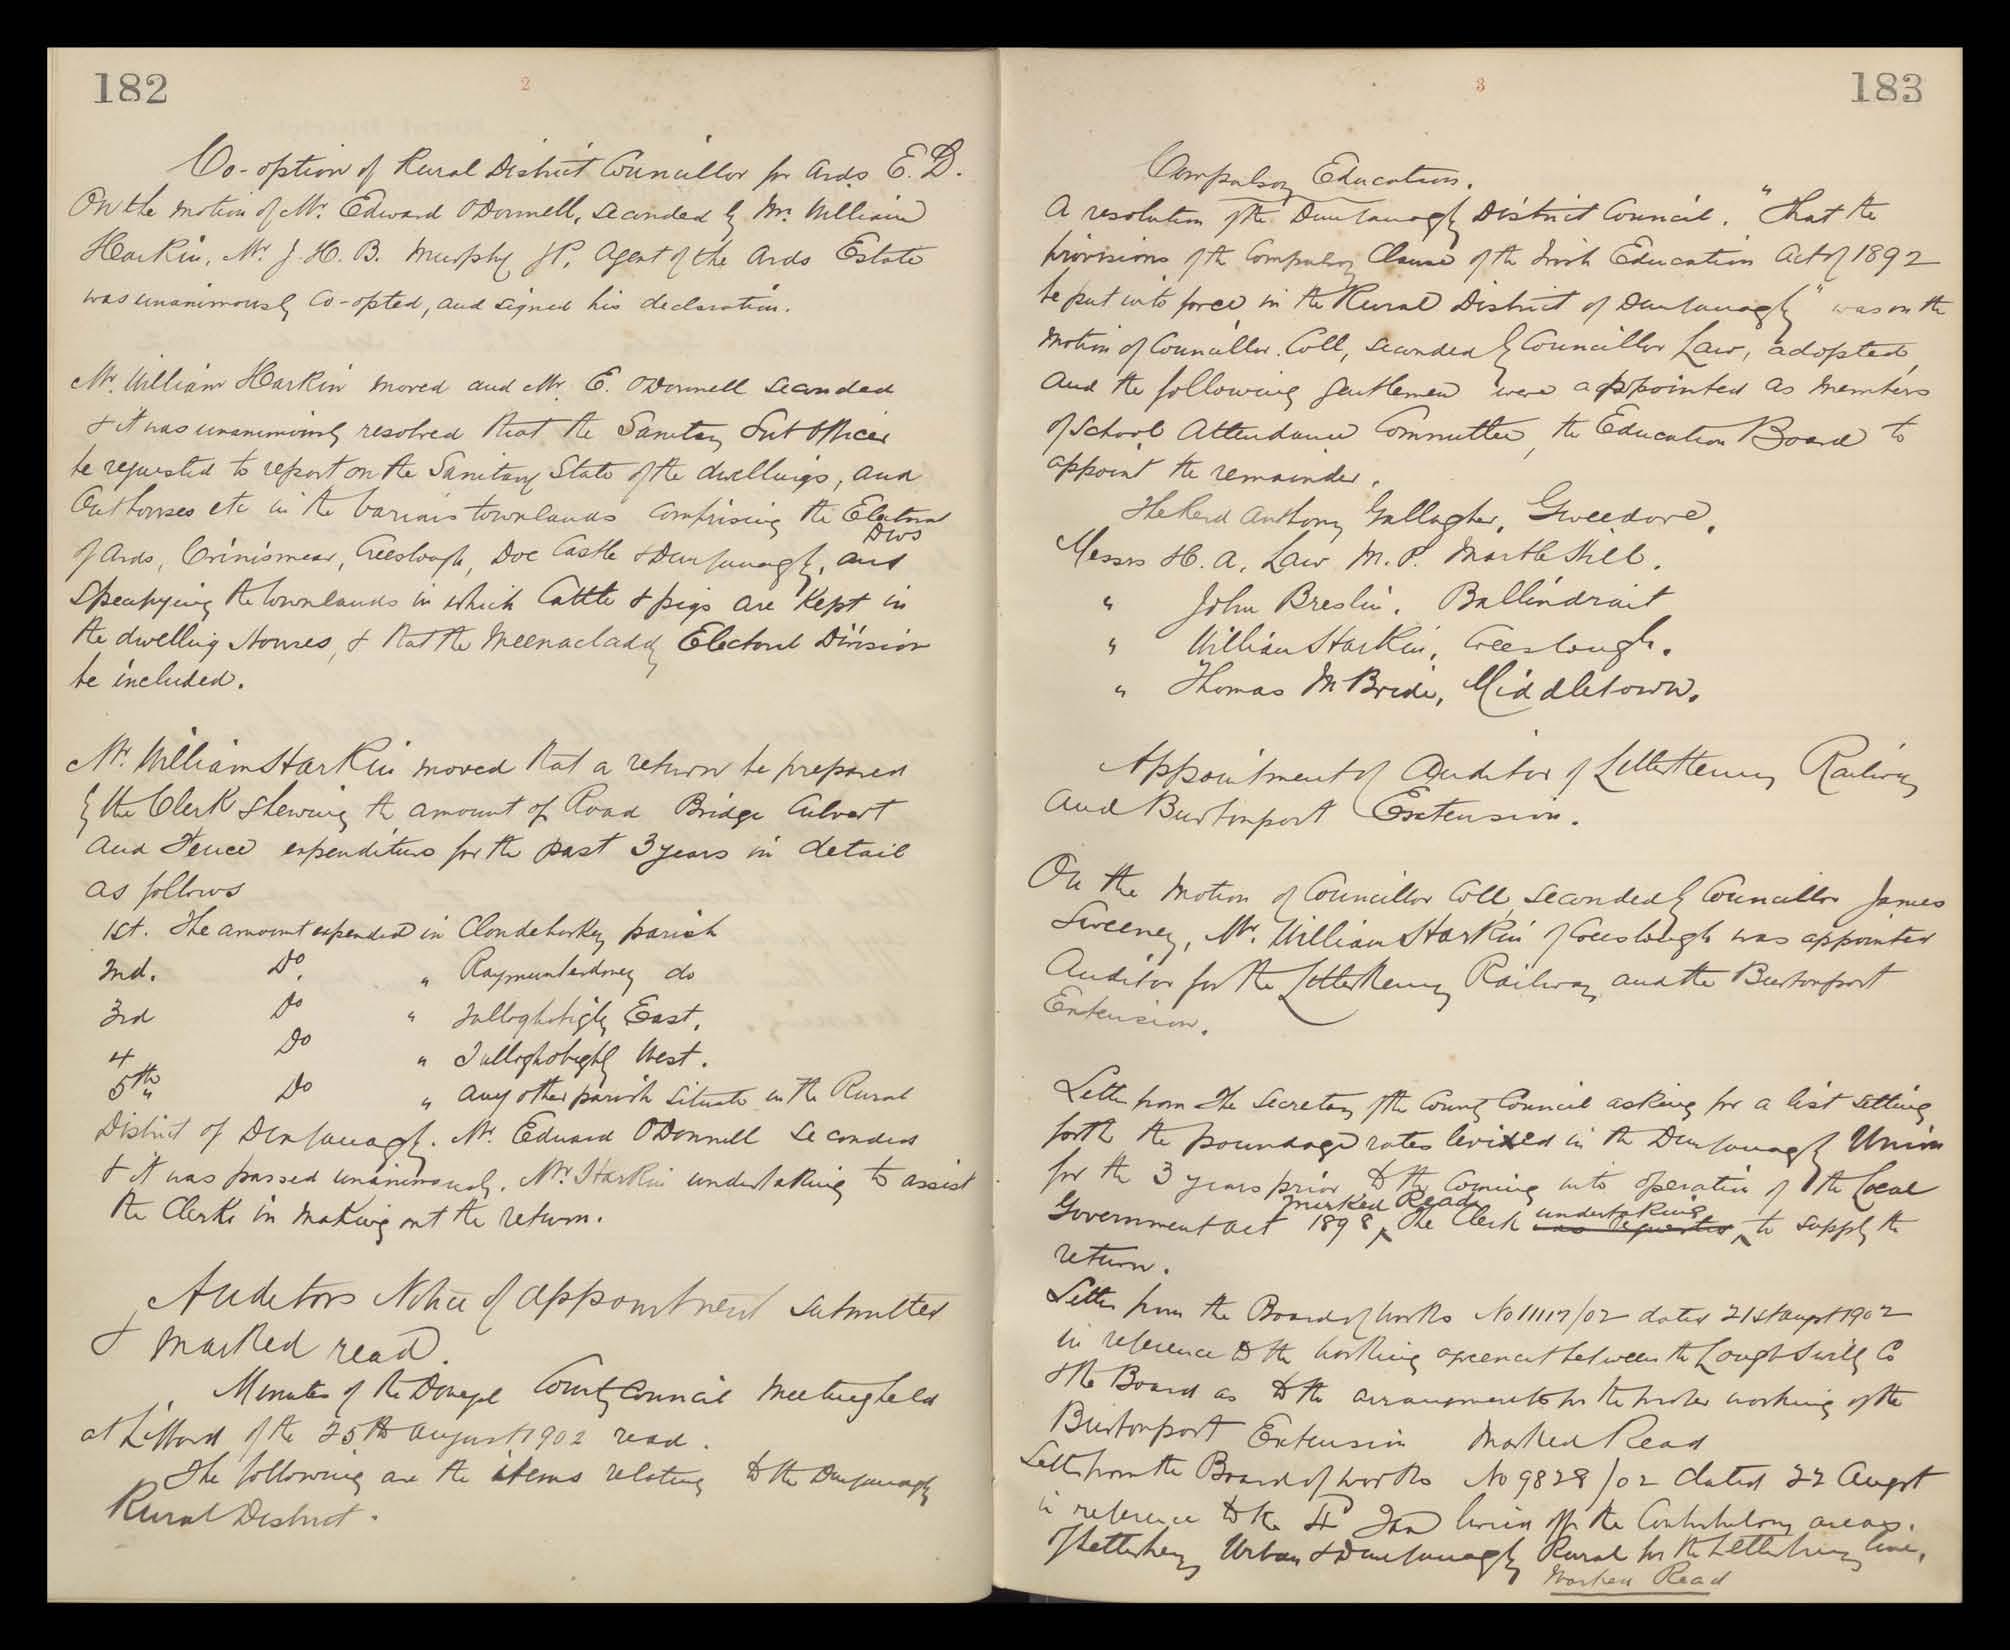 182
2
Co-option of Rural District Councillor for Ards E.D.
On the motion of Mr. Edward O'Donnell, seconded by Mr. William
Harkin, Mr J. H. B. Murphy JP, Agent of the Ards Estate
was unanimously Co-opted, and signed his declaration.
Mr. William Harkin moved and Mr. E. O'Donnell seconded
& it was unanimously resolved that the Sanitary Sub Officer
be requested to report on the Sanitary State of the dwellings, and
Outhouses etc in the various townlands comprising the Electoral
Divs
of Ards, Creeslough, Doe Castle & Dunfanaghy, and
Specifying the townlands in which Cattle & pigs are kept in
the dwelling Houses, & that the Meenacladdy Electoral Division
be included.
Mr. William Harkin moved that a return be prepared
by the Clerk shewing the amount of Road Bridge Culvert
and Fence expenditure for the past 3 years in detail
as follows
1st. The amount expended in Clondehorkey parish
2nd. Do. " Raymunterdoney do
3rd Do " Tulloghobigly East.
4 Do " Tulloghobigly West.
5th " Do " any other parish situate in the Rural
District of Dunfanaghy. Mr. Edward O'Donnell seconded
& it was passed unanimously. Mr. Harkin undertaking to assist
the Clerk in making out the return.
Auditors Notice of appointment submitted
& marked read.
Minutes of the Donegal County Council Meeting held
at Lifford of the 25th August 1902 read.
The following are the items relating to the Dunfanaghy
Rural District.
183
3
Compulsory Education.
A resolution of the Dunfanaghy District Council. "That the
provisions of the Compulsory Clause of the Irish Education Act of 1892
be put into force in the Rural District of Dunfanaghy" was on the
motion of Councillor Coll, seconded by Councillor Law, adopted,
and the following gentlemen were appointed as members
of School Attendance Committee, the Education Board to
appoint the remainder.
The Revd Anthony Gallagher, Gweedore.
Messrs H. A. Law M.P. Marble Hill.
" John Breslin. Ballindrait
" William Harkin, Creeslough.
" Thomas McBride, Middletown.
Appointment of Auditor of Letterkenny Railway
and Burtonport Extension.
On the motion of Councillor Coll, seconded by Councillor James
Sweeney, Mr. William Harkin of Creeslough was appointed
Auditor for the Letterkenny Railway and the Burtonport
Extension.
Letter from The Secretary of the County Council asking for a list setting
forth the poundage rates levied in the Dunfanaghy Union
for the 3 years prior to the coming into operation of the Local
Marked Read undertaking
Government Act 1898, The Clerk was requested to supply the
return.
Letter from the Board of Works No 11117/02 dated 21st Augst 1902
in reference to the working agreement between the Lough Swilly Co
& the Board as to the arrangements for the proper working of the
Burtonport Extension Marked Read
Letter from the Board of Works No 9828/02 dated 22 Augst
in reference to the levied off the Contributory areas.
of Letterkenny Urban & Dunfanaghy Rural for the Letterkenny line.
Marked Read